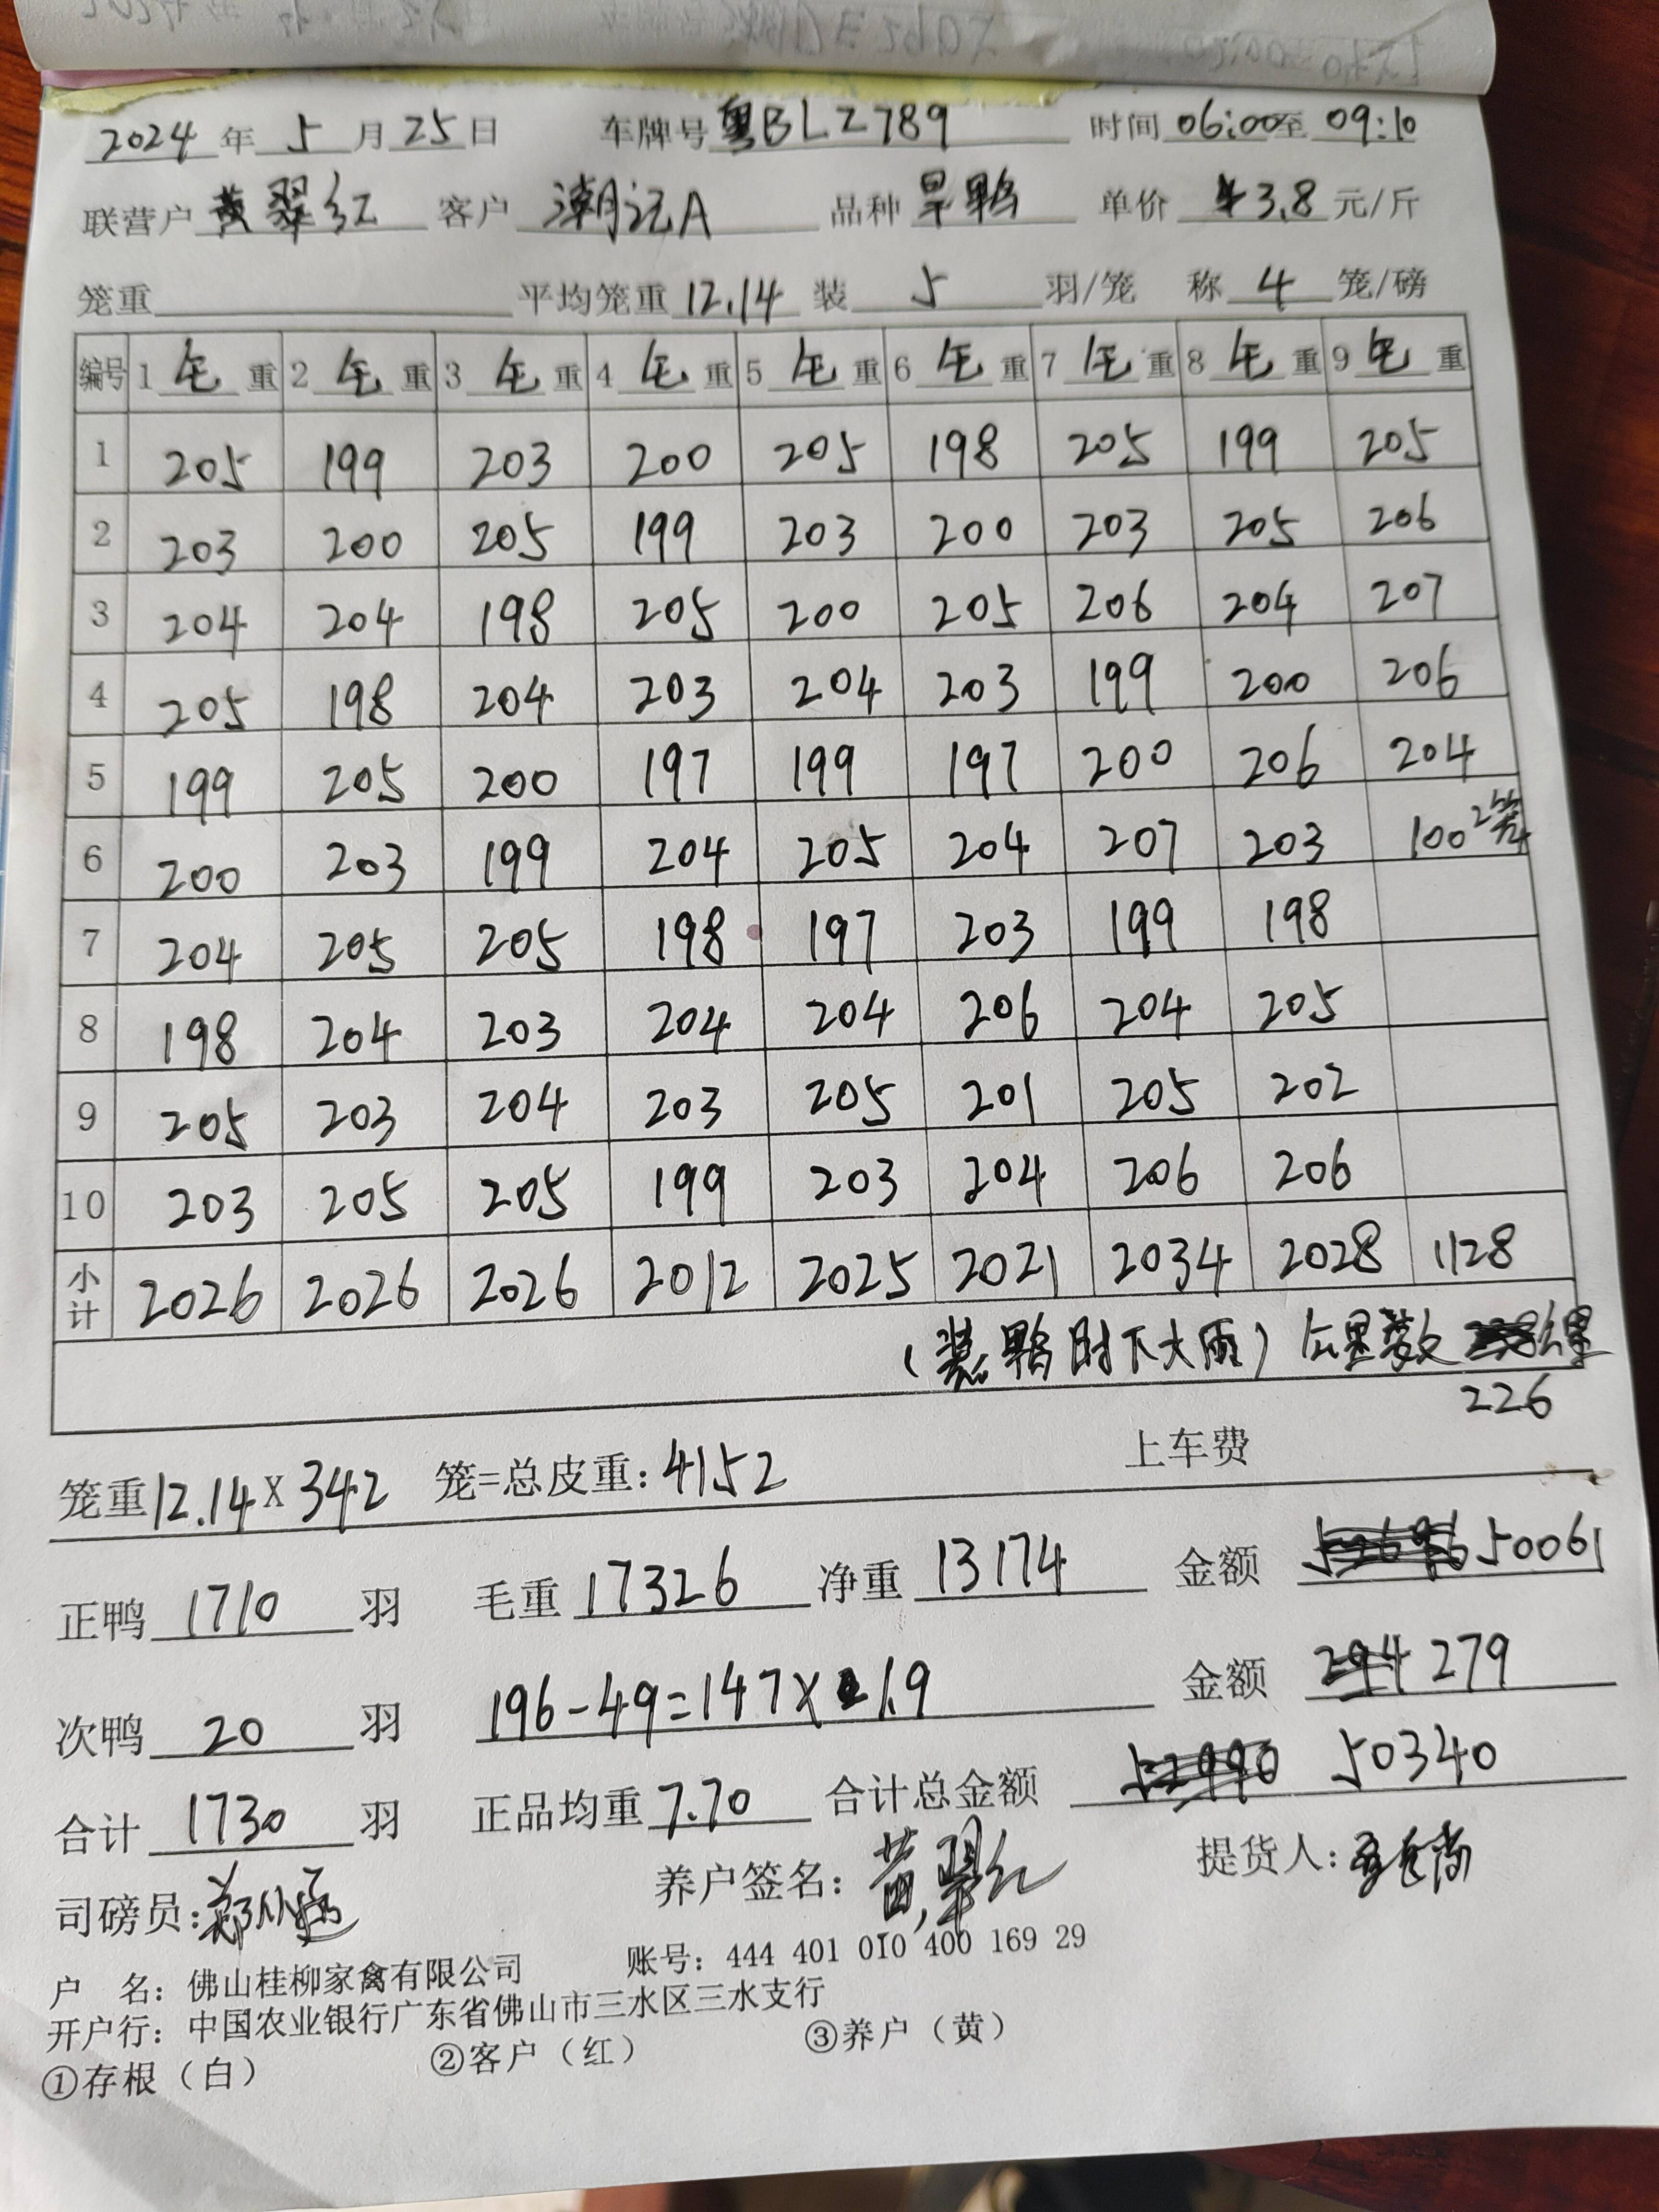 2024年5月25日 车牌号粤BLZ789 时间06:00至09:10
联营户黄翠红 客户潮记A 品种旱鸭 单价¥3.8元/斤
笼重 平均笼重12.14 装5羽/笼 称4笼/磅
编号 1毛重 2毛重 3毛重 4毛重 5毛重 6毛重 7毛重 8毛重 9毛重
1 205 199 203 200 205 198 205 199 205
2 203 200 205 199 203 200 203 205 206
3 204 204 198 205 200 205 206 204 207
4 205 198 204 203 204 203 199 200 206
5 199 205 200 197 199 197 200 206 204
6 200 203 199 204 205 204 207 203 100 2笼
7 204 205 205 198 197 203 199 198
8 198 204 203 204 204 206 204 205
9 205 203 204 203 205 201 205 202
10 203 205 205 199 203 204 206 206
小计 2026 2026 2026 2012 2025 2021 2034 2028 1128
(装鸭时下大雨) 公里数 公里
226
笼重12.14×342 笼=总皮重:4152 上车费
正鸭1710羽 毛重17326 净重13174 金额 50061
次鸭20羽 196-49=147×1.9 金额 294 279
合计1730羽 正品均重7.70 合计总金额 52990 50340
司磅员: 养户签名:黄翠红 提货人:
户 名:佛山桂柳家禽有限公司 账号:444 401 010 400 169 29
开户行:中国农业银行广东省佛山市三水区三水支行
①存根(白) ②客户(红) ③养户(黄)